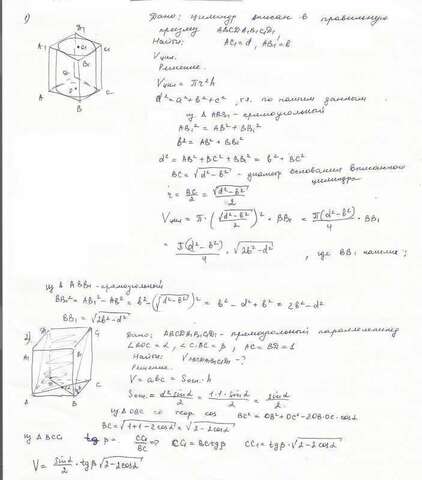 1)
Дано: цилиндр вписан в правильную
призму ABCDA₁B₁C₁D₁
Найти: AC₁=d, AB₁=b
Vцил.
Решение.
Vцил = πr²h
d² = a²+b²+c², т.к. по нашим данным
из Δ ABB₁ - прямоугольный
AB₁² = AB² + BB₁²
b² = AB² + BB₁²
d² = AB² + BC² + BB₁² = b² + BC²
BC = √(d²-b²) - диаметр основания вписанного
цилиндра
r = BC/2 = √(d²-b²)/2
Vцил = π·(√(d²-b²)/2)²·BB₁ = π(d²-b²)/4 · BB₁
= π(d²-b²)/4 · √(2b²-d²), где BB₁ нашли;
из Δ ABB₁ - прямоугольный
BB₁² = AB₁² - AB² = b² - (√(d²-b²))² = b² - d² + b² = 2b² - d²
BB₁ = √(2b²-d²)
2)
Дано: ABCDA₁B₁C₁D₁ - прямоугольный параллелепипед
∠BOC = α, ∠C₁BC = β, AC = BD = 1
Найти: VABCDA₁B₁C₁D₁ - ?
Решение.
V = abc = Sосн.·h
Sосн. = d² sinα/2 = 1·1·sinα/2 = sinα/2
из Δ OBC по теор. cos BC² = OB² + OC² - 2OB·OC·cosα
BC = √(1+1-2cosα) = √(2-2cosα)
из Δ BCC₁ tgβ = CC₁/BC ⇒ CC₁ = BC tgβ CC₁ = tgβ·√(2-2cosα)
V = sinα/2 · tgβ √(2-2cosα)